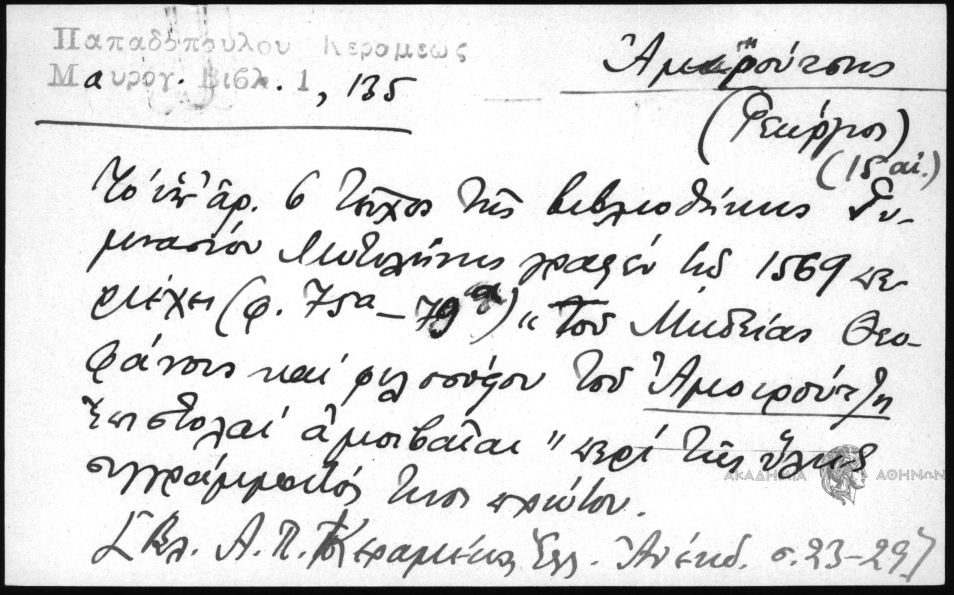 Παπαδοπούλου Κεραμεως
Μαυρογ. Βιβλ. 1, 135
Ἀμοιρούτσης
(Γεώργιος)
(15 αἰ.)
Τὸ ὑπ' ἀρ. 6 τεῦχος τῆς βιβλιοθήκης Γυ-
μνασίου Μυτιλήνης γραφὲν τῷ 1569 πε
ριέχει (φ. 75α – 79α) "τοῦ Μηδείας Θεο-
φάνους καὶ φιλοσόφου τοῦ Ἀμοιρούτζη
ἐπιστολαί ἀμοιβαῖαι" περί τῆς ὕλης
συγγράμματός τινος πρώτου.
[Βλ. Α. Π. Κεραμέως Ἑλλ. Ἀνέκδ. σ. 23-29]
ΑΚΑΔΗΜΙΑ ΑΘΗΝΩΝ